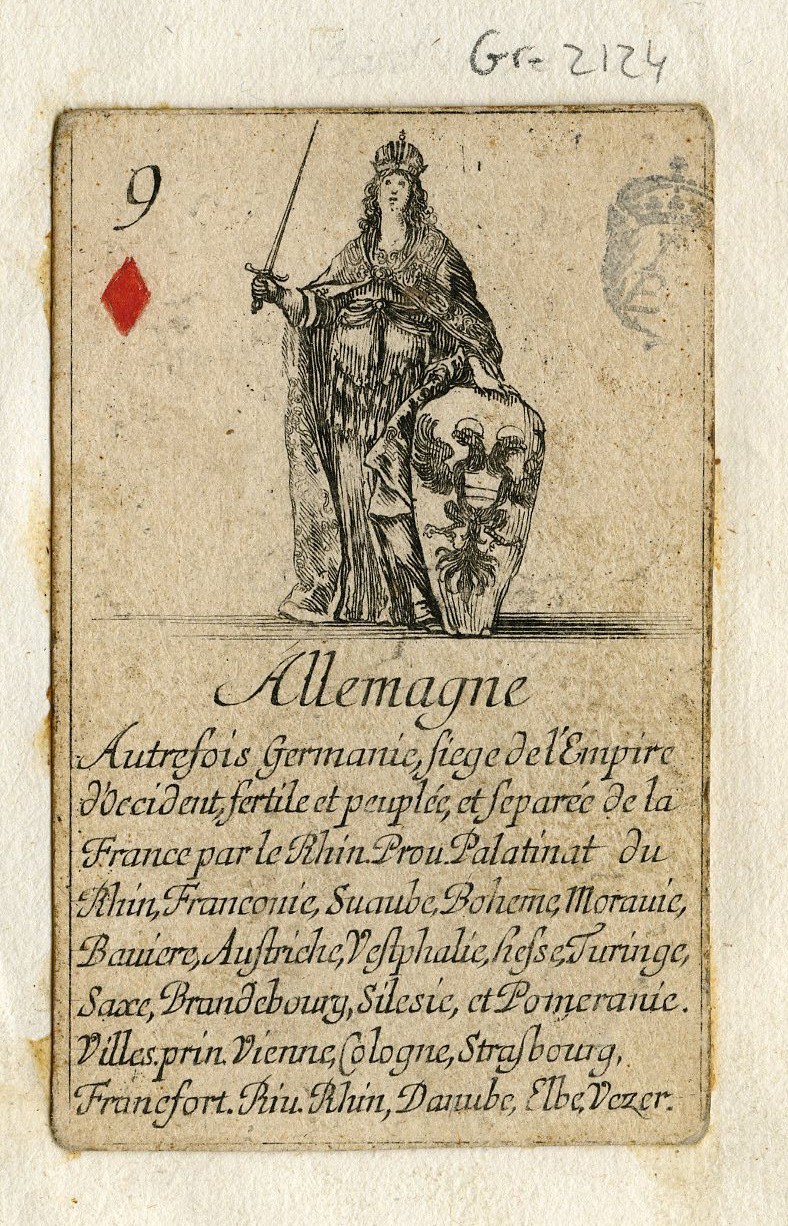 Gr. 2124
9
Allemagne
Autrefois Germanie, siege de l'Empire
d'Occident, fertile et peuplée, et separée de la
France par le Rhin. Prou. Palatinat du
Rhin, Franconie, Suaube, Boheme, Morauie,
Bauiere, Austriche, Vestphalie, hesse, Turinge,
Saxe, Brandebourg, Silesie, et Pomeranie.
Villes prin. Vienne, Cologne, Strasbourg,
Francfort. Riu. Rhin, Danube, Elbe, Vezer.